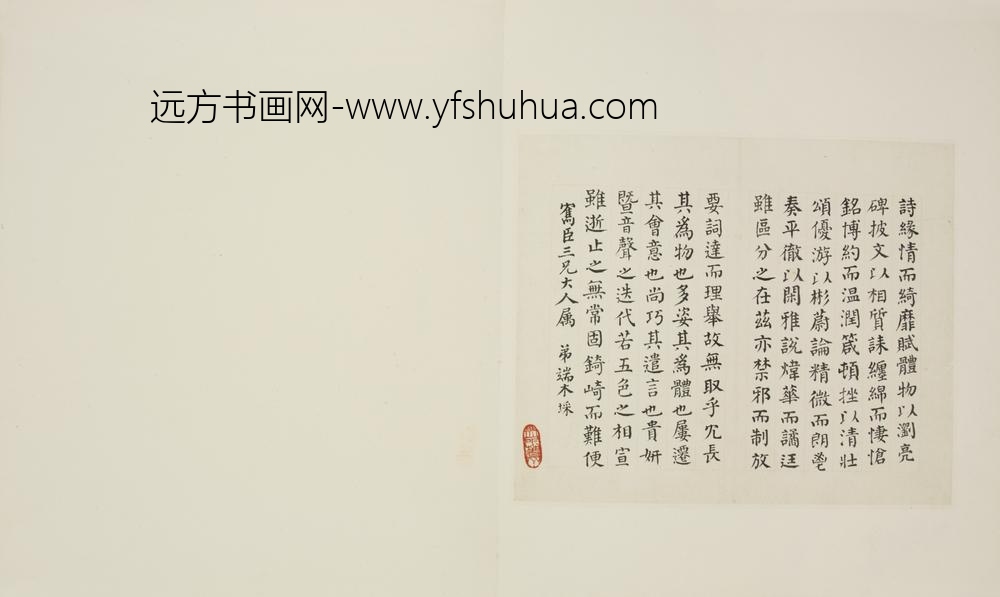 远方书画网-www.yfshuhua.com
詩緣情而綺靡賦體物以瀏亮
碑披文以相質誄纏綿而悽愴
銘博約而温潤箴頓挫以清壯
頌優游以彬蔚論精微而朗鬯
奏平徹以閑雅說煒華而譎誑
雖區分之在茲亦禁邪而制放
要詞達而理舉故無取乎冗長
其爲物也多姿其爲體也屢遷
其會意也尚巧其遣言也貴妍
暨音聲之迭代若五色之相宣
雖逝止之無常固錡崎而難便
寯臣三兄大人属 弟端木埰